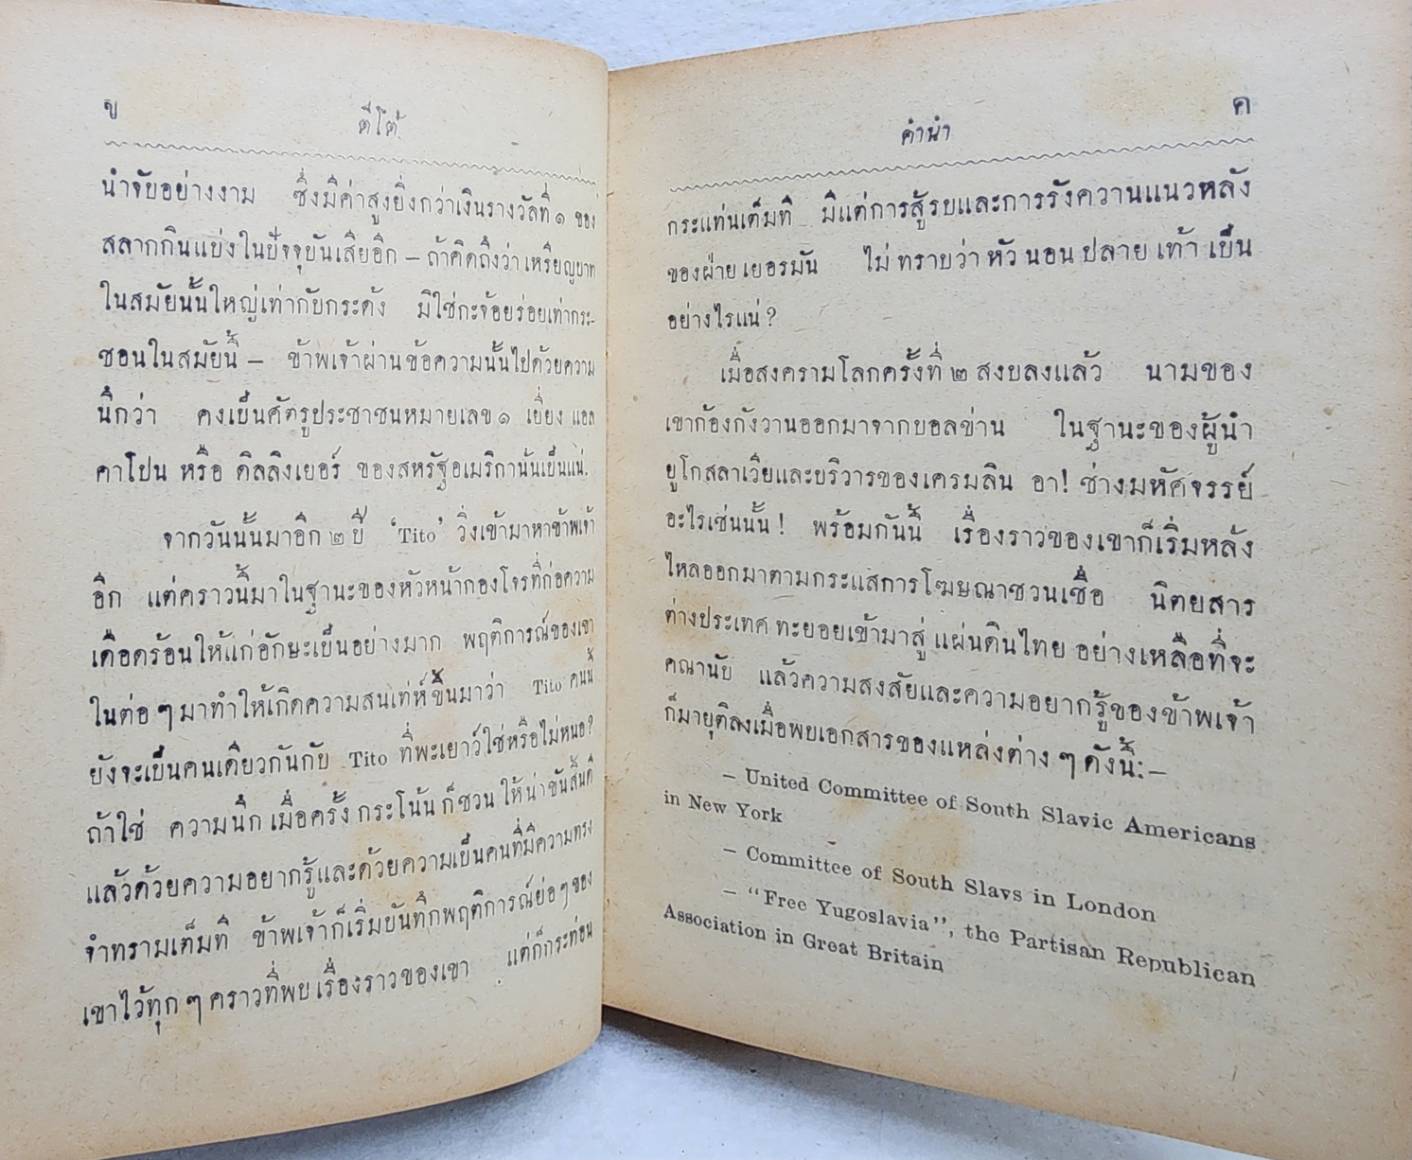 ข
ตีโต้
นำจับอย่างงาม ซึ่งมีค่าสูงยิ่งกว่าเงินรางวัลที่ ๑ ของ
สลากกินแบ่งในปัจจุบันเสียอีก – ถ้าคิดถึงว่าเหรียญบาท
ในสมัยนั้นใหญ่เท่ากับกระด้ง มิใช่กะจ้อยร่อยเท่ากระ-
ชอนในสมัยนี้ – ข้าพเจ้าผ่านข้อความนั้นไปด้วยความ
นึกว่า คงเป็นศัตรูประชาชนหมายเลข ๑ เยี่ยง แอล
คาโปน หรือ ดิลลิงเยอร์ ของสหรัฐอเมริกานั่นเป็นแน่.
จากวันนั้นมาอีก ๒ ปี ‘Tito’ วิ่งเข้ามาหาข้าพเจ้า
อีก แต่คราวนี้มาในฐานะของหัวหน้ากองโจรที่ก่อความ
เดือดร้อนให้แก่อักษะเป็นอย่างมาก พฤติการณ์ของเขา
ในต่อ ๆ มาทำให้เกิดความสนเท่ห์ขึ้นมาว่า Tito คนนี้
ยังจะเป็นคนเดียวกันกับ Tito ที่พะเยาว์ใช่หรือไม่หนอ?
ถ้าใช่ ความนึกเมื่อครั้งกระโน้นก็ชวนให้น่าขันสิ้นดี
แล้วด้วยความอยากรู้และด้วยความเป็นคนที่มีความทรง
จำทรามเต็มที ข้าพเจ้าก็เริ่มบันทึกพฤติการณ์ย่อ ๆ ของ
เขาไว้ทุก ๆ คราวที่พบเรื่องราวของเขา แต่ก็กระท่อน
ค
คำนำ
กระแท่นเต็มที มีแต่การสู้รบและการรังควานแนวหลัง
ของฝ่ายเยอรมัน ไม่ทราบว่าหัวนอนปลายเท้าเป็น
อย่างไรแน่?
เมื่อสงครามโลกครั้งที่ ๒ สงบลงแล้ว นามของ
เขาก้องกังวานออกมาจากบอลข่าน ในฐานะของผู้นำ
ยูโกสลาเวียและบริวารของเครมลิน อา! ช่างมหัศจรรย์
อะไรเช่นนั้น! พร้อมกันนี้ เรื่องราวของเขาก็เริ่มหลัง
ไหลออกมาตามกระแสการโฆษณาชวนเชื่อ นิตยสาร
ต่างประเทศทะยอยเข้ามาสู่แผ่นดินไทยอย่างเหลือที่จะ
คณานับ แล้วความสงสัยและความอยากรู้ของข้าพเจ้า
ก็มายุติลงเมื่อพบเอกสารของแหล่งต่าง ๆ ดังนี้:–
– United Committee of South Slavic Americans
in New York
– Committee of South Slavs in London
– “Free Yugoslavia”, the Partisan Republican
Association in Great Britain